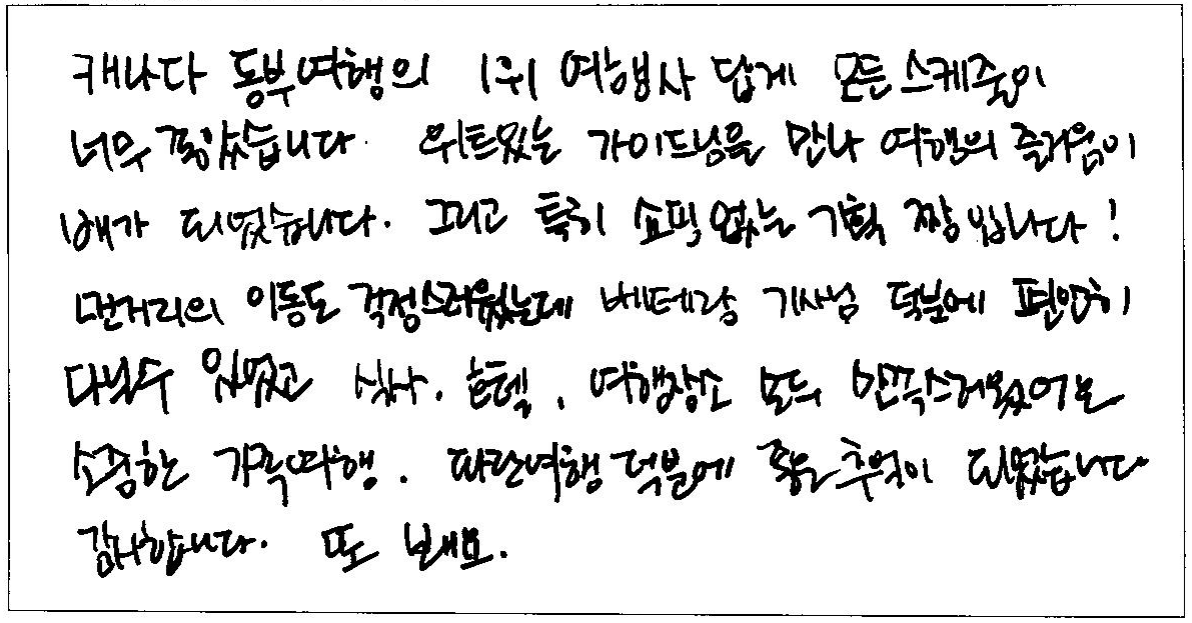 캐나다 동부여행의 1위 여행사 답게 모든 스케줄이
너무 좋았습니다. 위트있는 가이드님을 만나 여행의 즐거움이
배가 되었습니다. 그리고 특히 쇼핑 없는 기획 짱입니다!
먼거리의 이동도 걱정스러웠는데 베테랑 기사님 덕분에 편안히
다닐수 있었고 식사, 호텔, 여행장소 모두 만족스러웠어요
소중한 가족여행. 파란여행 덕분에 좋은 추억이 되었습니다
감사합니다. 또 보내요.